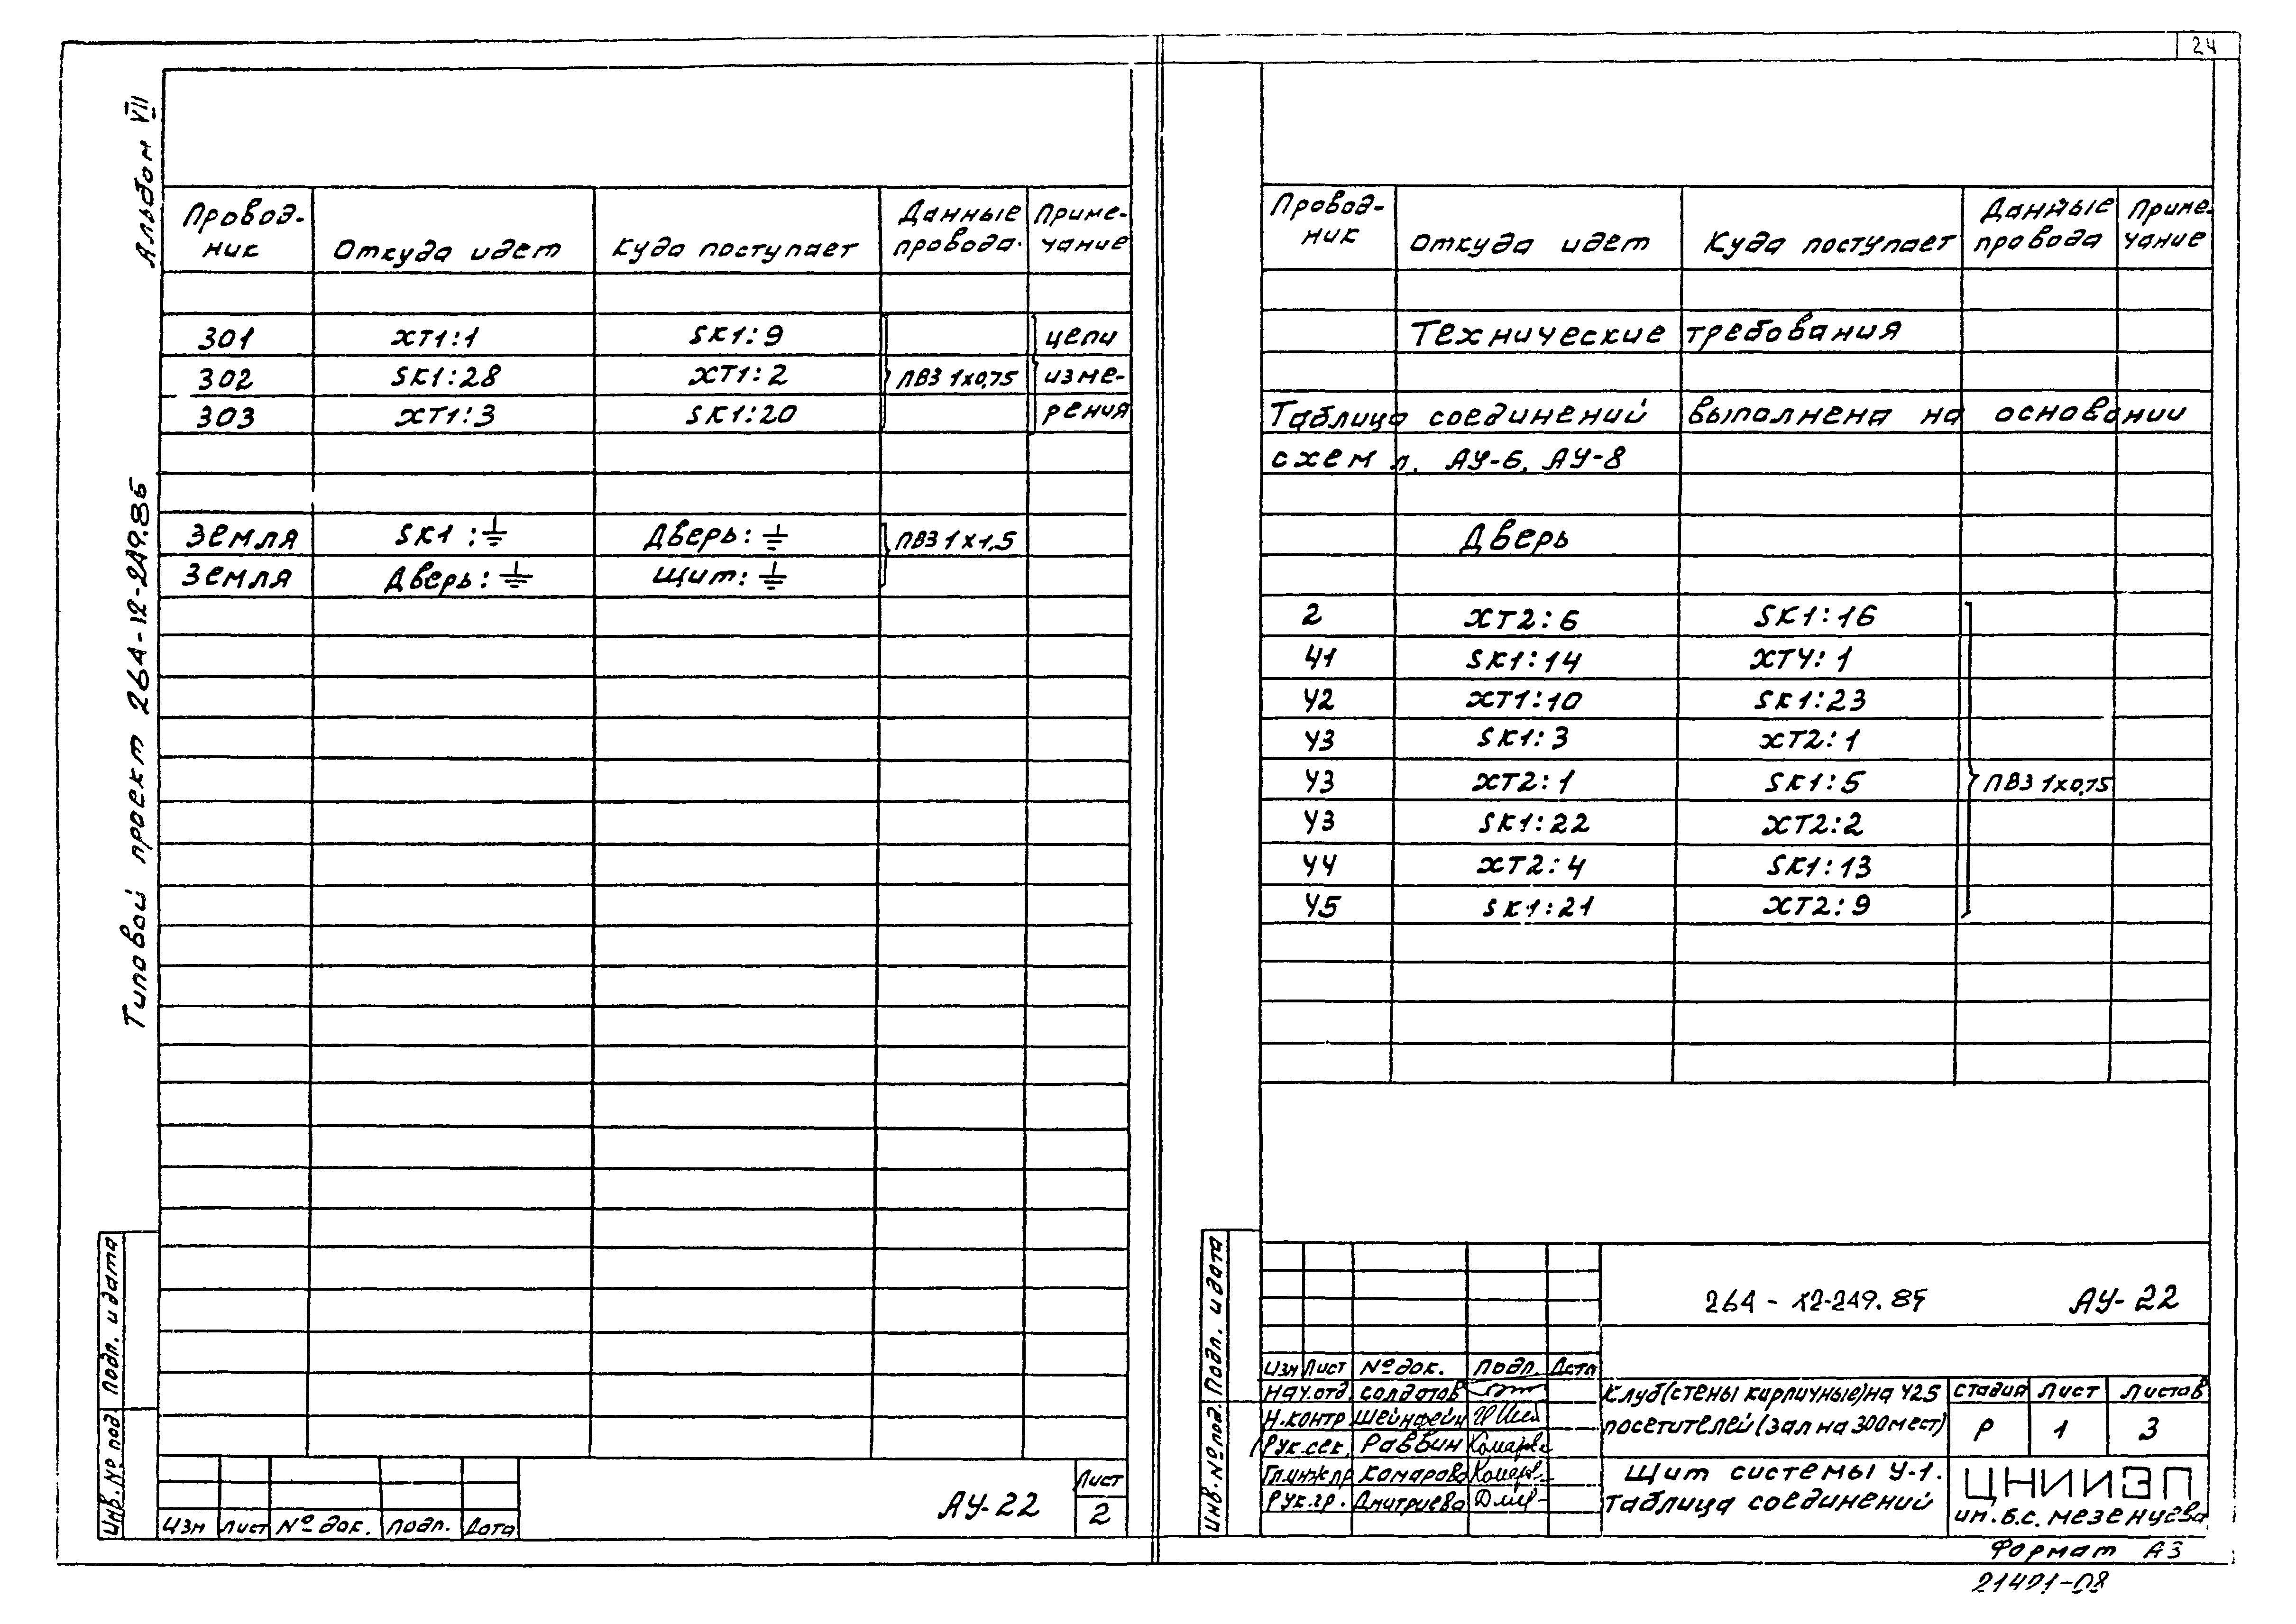 24
Альбом VII
Типовой проект 264-12-249.85
Провод-ник | Откуда идет | Куда поступает | Данные провода | Приме-чание
301 | XT1:1 | SK1:9 | | цепи
302 | SK1:28 | XT1:2 | ПВ3 1x0,75 | изме-
303 | XT1:3 | SK1:20 | | рения
Земля | SK1:⏚ | Дверь:⏚ | ПВ3 1x1,5
Земля | Дверь:⏚ | Щит:⏚
Инв.№ под. Подп. и дата
Изм Лист № док. Подп. Дата
АУ-22
Лист
2
Провод-ник | Откуда идет | Куда поступает | Данные провода | Приме-чание
Технические требования
Таблица соединений выполнена на основании
схем л. АУ-6, АУ-8
Дверь
2 | XT2:6 | SK1:16
Ч1 | SK1:14 | XTЧ:1
Ч2 | XT1:10 | SK1:23
Ч3 | SK1:3 | XT2:1
Ч3 | XT2:1 | SK1:5 | ПВ3 1x0,75
Ч3 | SK1:22 | XT2:2
ЧЧ | XT2:4 | SK1:13
Ч5 | SK1:21 | XT2:9
Инв.№ под. Подп. и дата
264-12-249.85 АУ-22
Изм Лист № док. Подп. Дата
Нач.отд. Солдатов
Н.контр Шейнфейн
Рук.сек. Раввин
Гл.инж.пр Комарова
Рук.гр. Дмитриева
Клуб(стены кирпичные)на 425
посетителей(зал на 300мест)
Стадия Лист Листов
Р 1 3
Щит системы У-1.
Таблица соединений
ЦНИИЭП
им.Б.С.Мезенцева
Формат А3
21421-08